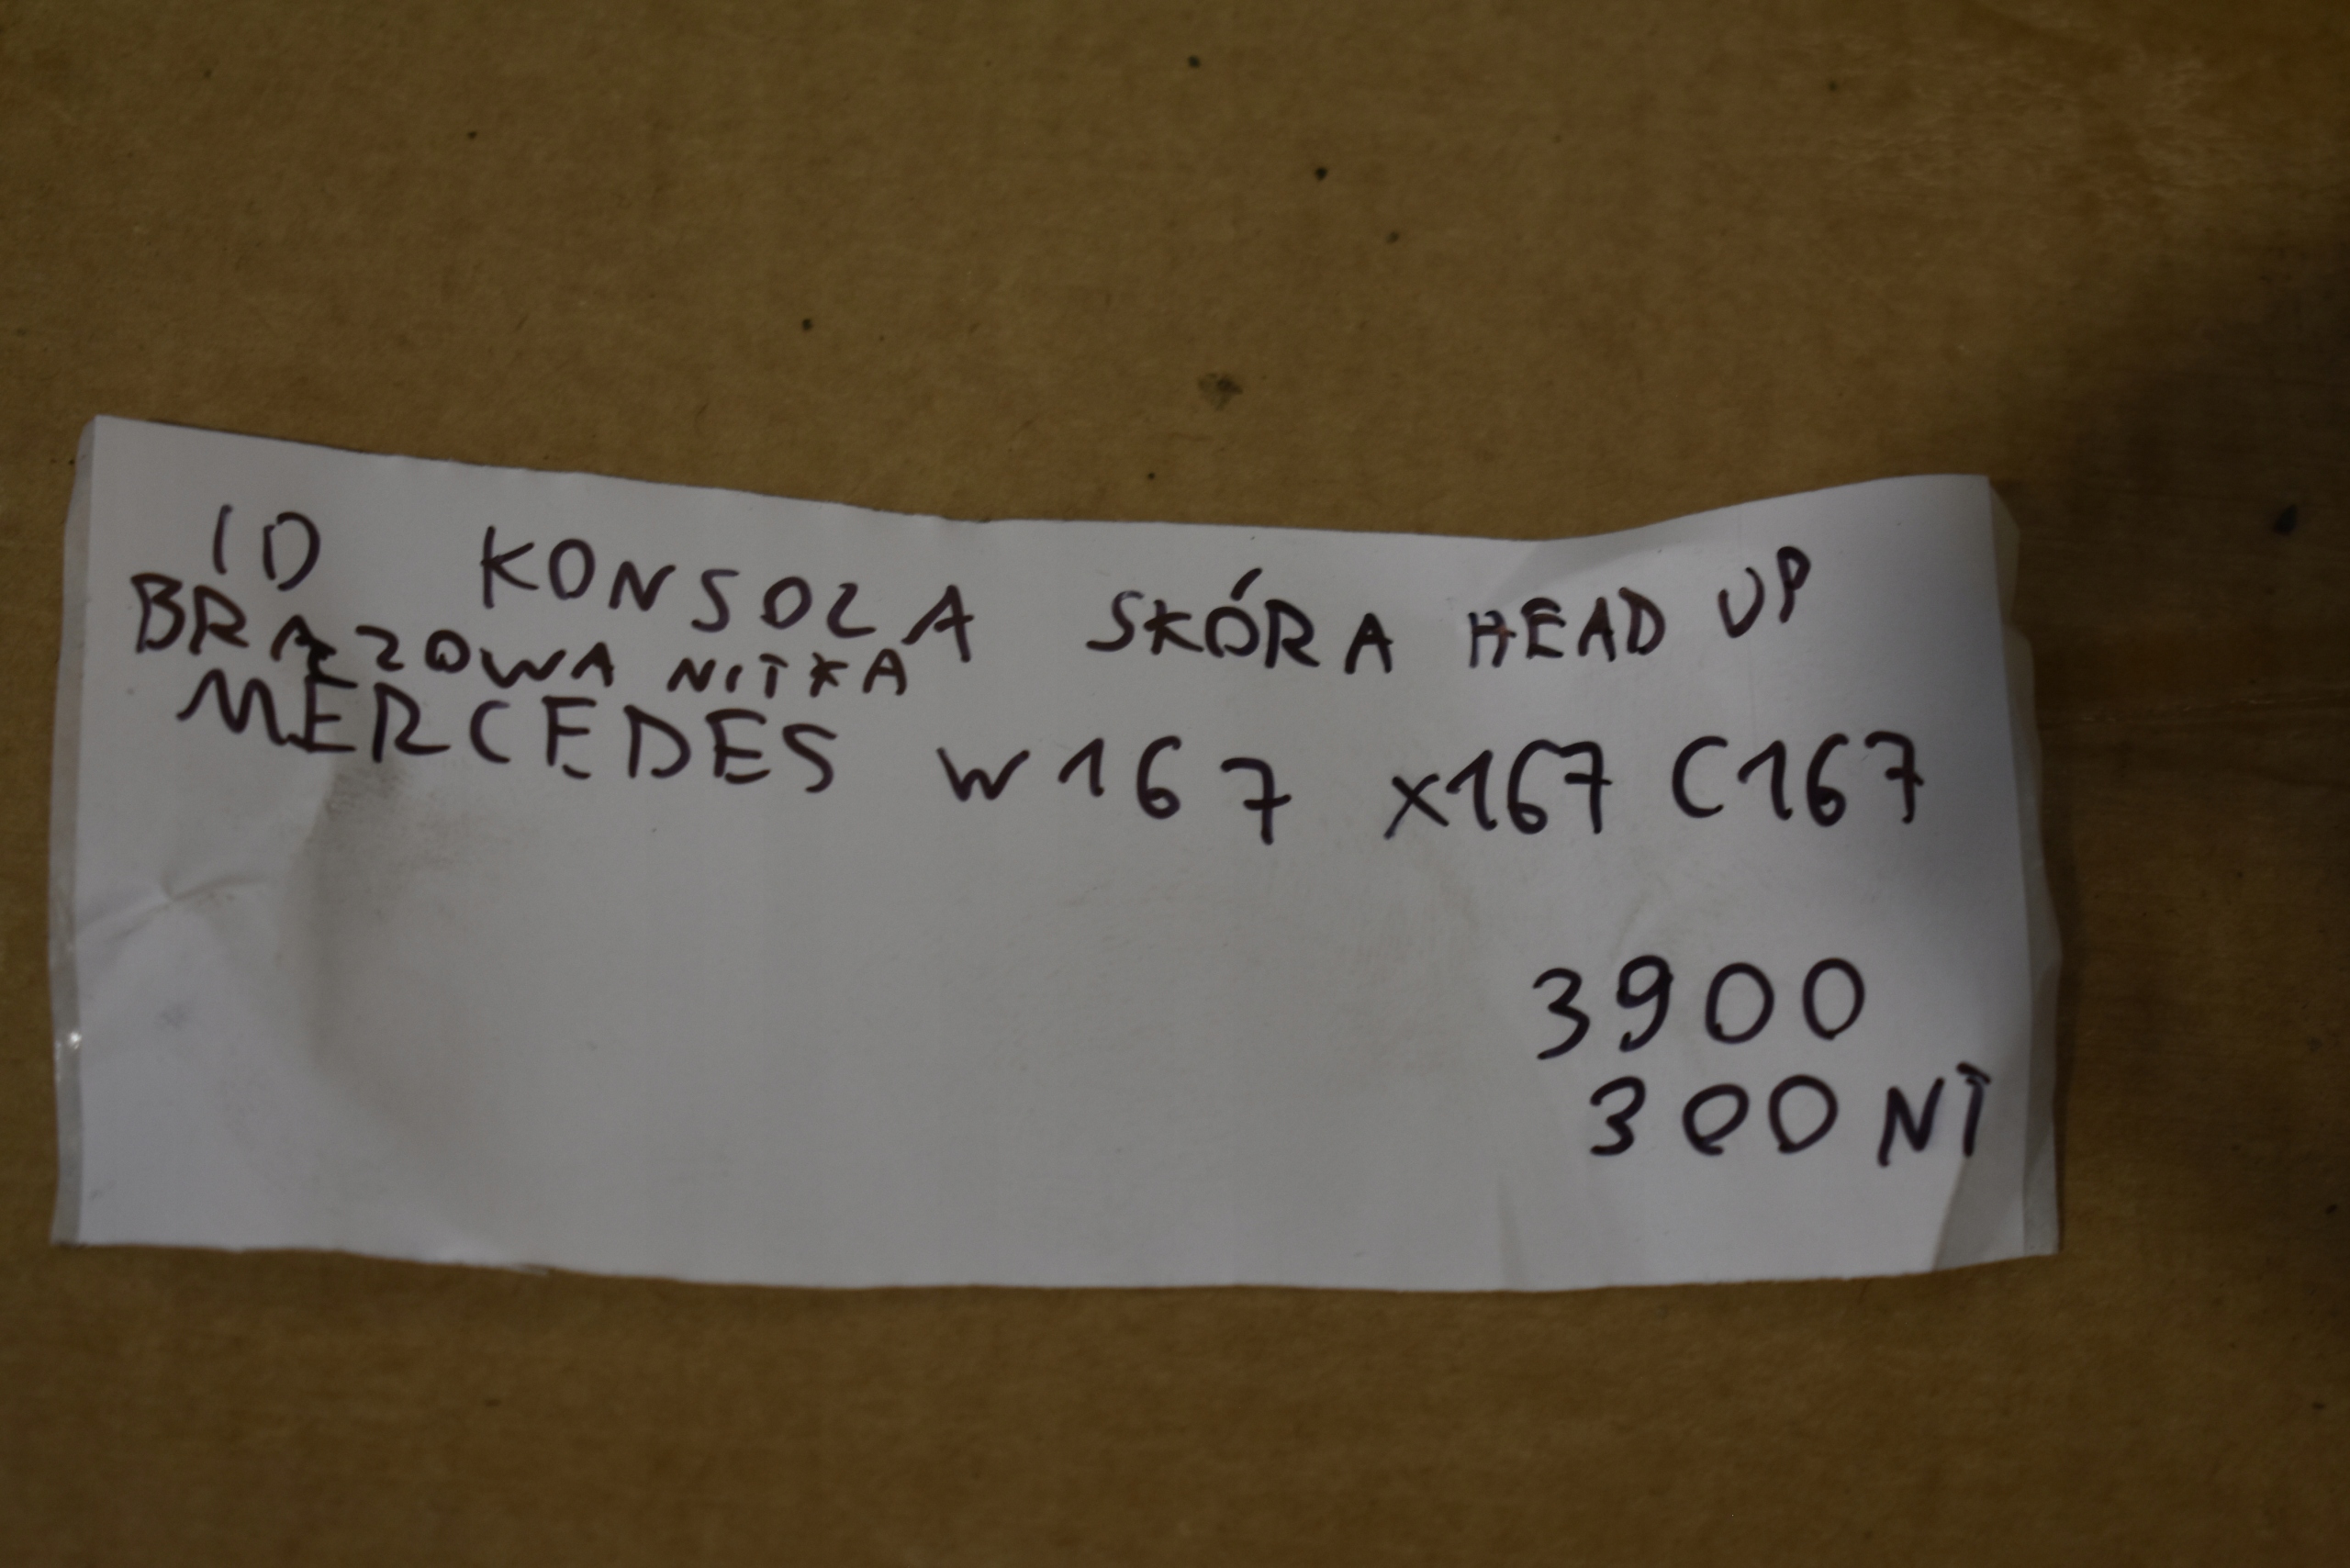 ID KONSOLA SKÓRA HEAD UP
BRĄZOWA NITKA
MERCEDES W167 X167 C167
3900
300 NT